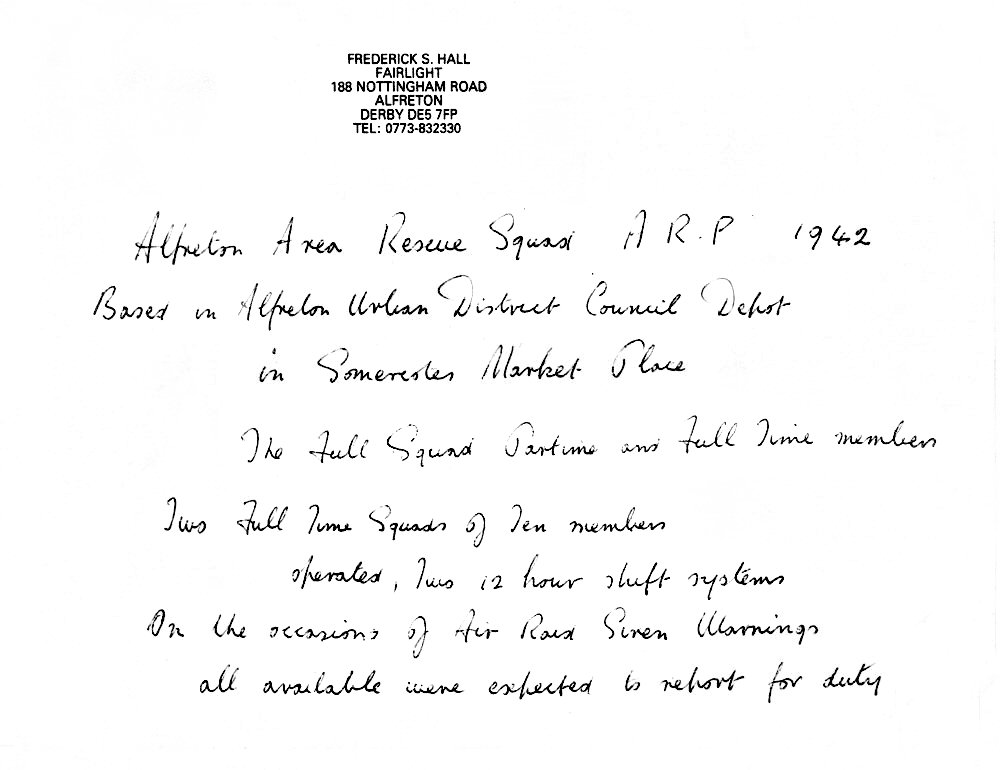 FREDERICK S. HALL
FAIRLIGHT
188 NOTTINGHAM ROAD
ALFRETON
DERBY DE5 7FP
TEL: 0773-832330
Alfreton Area Rescue Squad A R.P 1942
Based in Alfreton Urban District Council Depot
in Somercotes Market Place
The Full Squad Partime and Full Time members
Two Full Time Squads of Ten members
operated, Two 12 hour shift systems
On the occasions of Air Raid Siren Warnings
all available were expected to report for duty